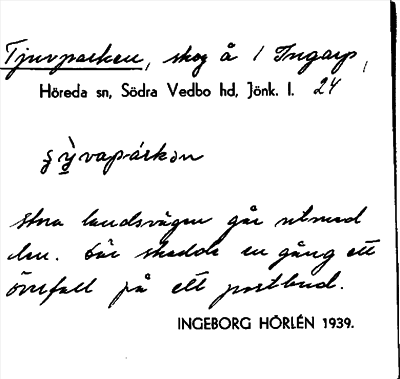 Tjuvparken, skog å 1 Ingarp,
Höreda sn, Södra Vedbo hd, Jönk. l. 24
stora landsvägen går utmed
den. Där skedde en gång ett
överfall på ett postbud.
INGEBORG HÖRLÉN 1939.